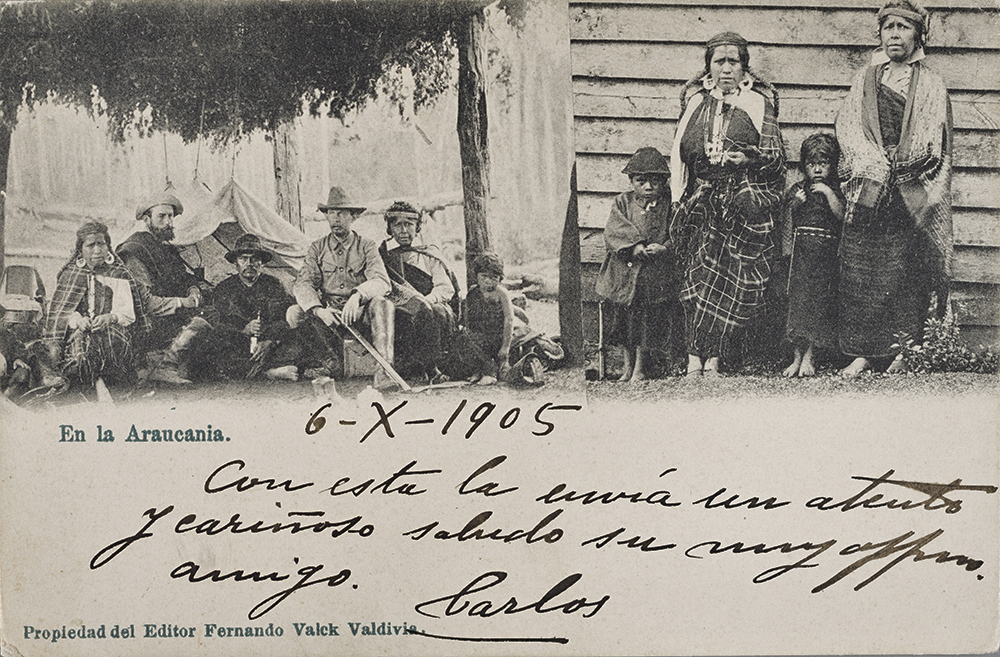 En la Araucania.
6-X-1905
Con esta la envía un atento
y cariñoso saludo su muy
amigo.
Carlos
Propiedad del Editor Fernando Valck Valdivia.